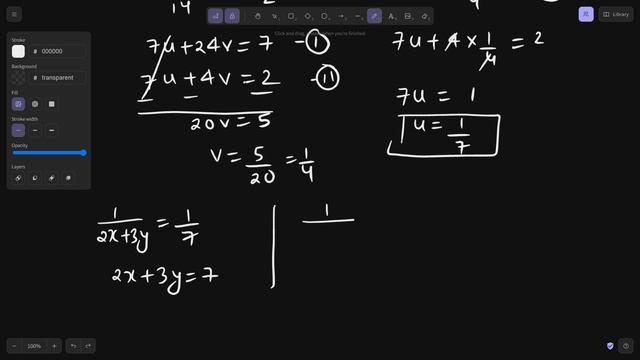 Library
Click and drag, release when you're finished
Stroke
# 000000
Background
# transparent
Fill
Stroke width
Opacity
Layers
14
7u + 24v = 7 - (1)
7u + 4v = 2 - (11)
20v = 5
v = 5/20 = 1/4
7u + 4 × 1/4 = 2
7u = 1
u = 1/7
1/(2x+3y) = 1/7
2x + 3y = 7
1
100%